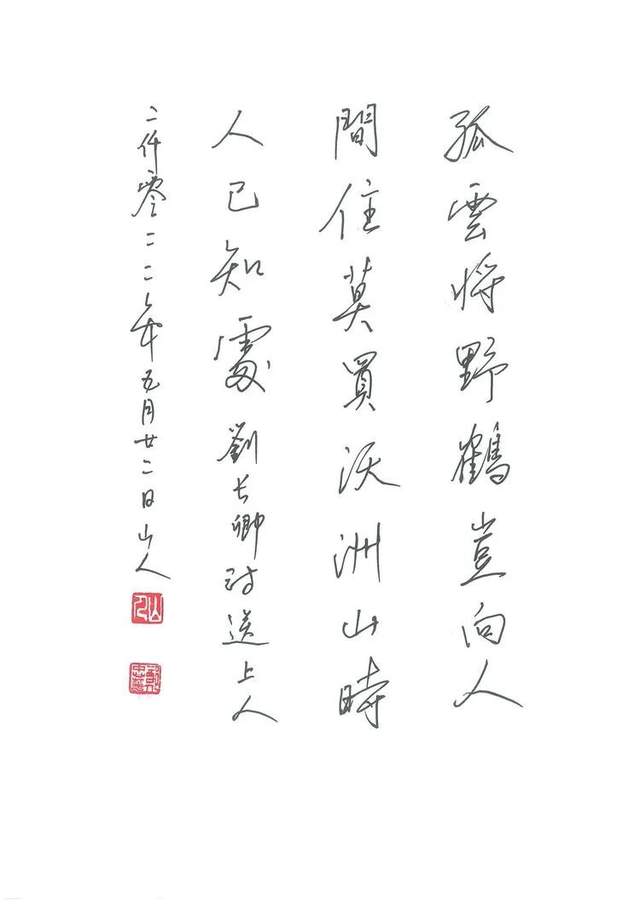 孤雲将野鶴豈向人
間住莫買沃洲山時
人已知處劉长卿诗送上人
二仟零二二年五月廿二日山人
山人